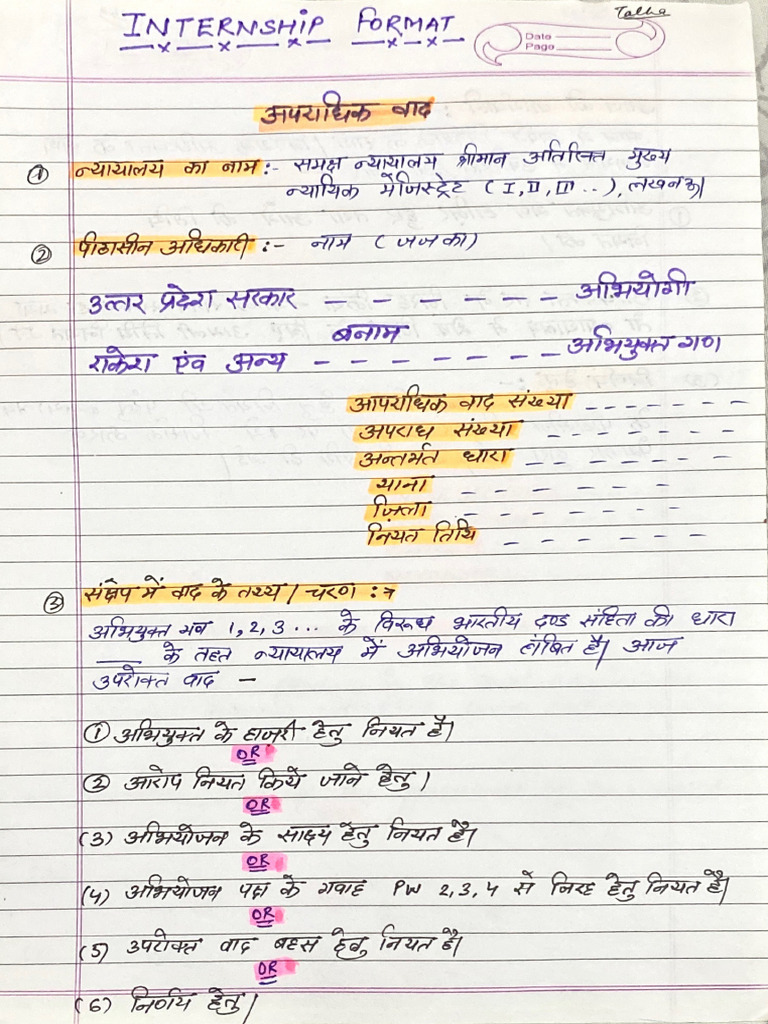 Talha
INTERNSHIP FORMAT
Date
Page
अपराधिक वाद
① न्यायालय का नाम :- समक्ष न्यायालय श्रीमान अतिरिक्त मुख्य
न्यायिक मैजिस्ट्रेट (I, II, III ..), लखनऊ।
② पीठासीन अधिकारी :- नाम (जज का)
उत्तर प्रदेश सरकार - - - - - - - अभियोगी
बनाम
राकेश एंव अन्य - - - - - - - - अभियुक्त गण
आपराधिक वाद संख्या - - - - - - -
अपराध संख्या - - - - - - -
अन्तर्गत धारा - - - - - - -
थाना - - - - - - -
ज़िला - - - - - - -
नियत तिथि - - - - - - -
③ संक्षेप में वाद के तथ्य / चरण :-
अभियुक्त गण 1, 2, 3 ... के विरूध भारतीय दण्ड संहिता की धारा
___ के तहत न्यायालय में अभियोजन लंबित है। आज
उपरोक्त वाद -
① अभियुक्त के हाजरी हेतु नियत है।
OR
② आरोप नियत किये जाने हेतु।
OR
(3) अभियोजन के साक्ष्य हेतु नियत है।
OR
(4) अभियोजन पक्ष के गवाह PW 2, 3, 4 से जिरह हेतु नियत है।
OR
(5) उपरोक्त वाद बहस हेतु नियत है।
OR
(6) निर्णय हेतु।